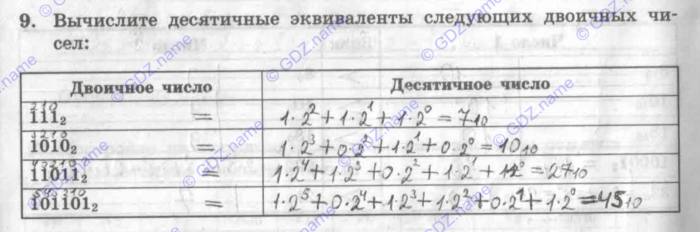 9. Вычислите десятичные эквиваленты следующих двоичных чи-
сел:
Двоичное число Десятичное число
210
111₂ = 1·2² + 1·2¹ + 1·2⁰ = 7₁₀
3210
1010₂ = 1·2³ + 0·2² + 1·2¹ + 0·2⁰ = 10₁₀
43210
11011₂ = 1·2⁴ + 1·2³ + 0·2² + 1·2¹ + 1·2⁰ = 27₁₀
543210
101101₂ = 1·2⁵ + 0·2⁴ + 1·2³ + 1·2² + 0·2¹ + 1·2⁰ = 45₁₀
© GDZ.name